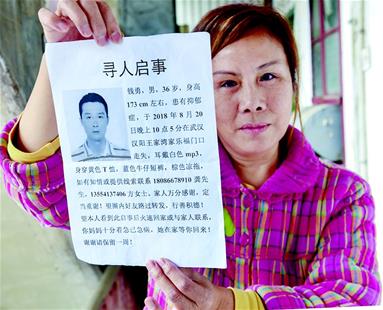 寻人启事
钱勇，男，36岁，身高
173 cm左右，患有抑郁
症，于2018年8月20
日晚上10点5分在武汉
汉阳王家湾家乐福门口
走失，耳戴白色mp3，
身穿黄色T恤，蓝色牛仔短裤，棕色凉拖，
如有知情或提供线索联系18086678910龚先
生，13554137406方女士，家人万分感谢，定
当重谢！望圈内好友路过转发，行善积德！
望本人看到此启事后火速回家或与家人联系，
你妈妈十分着急已急病，她在家等你回来！
谢谢请保留一周！